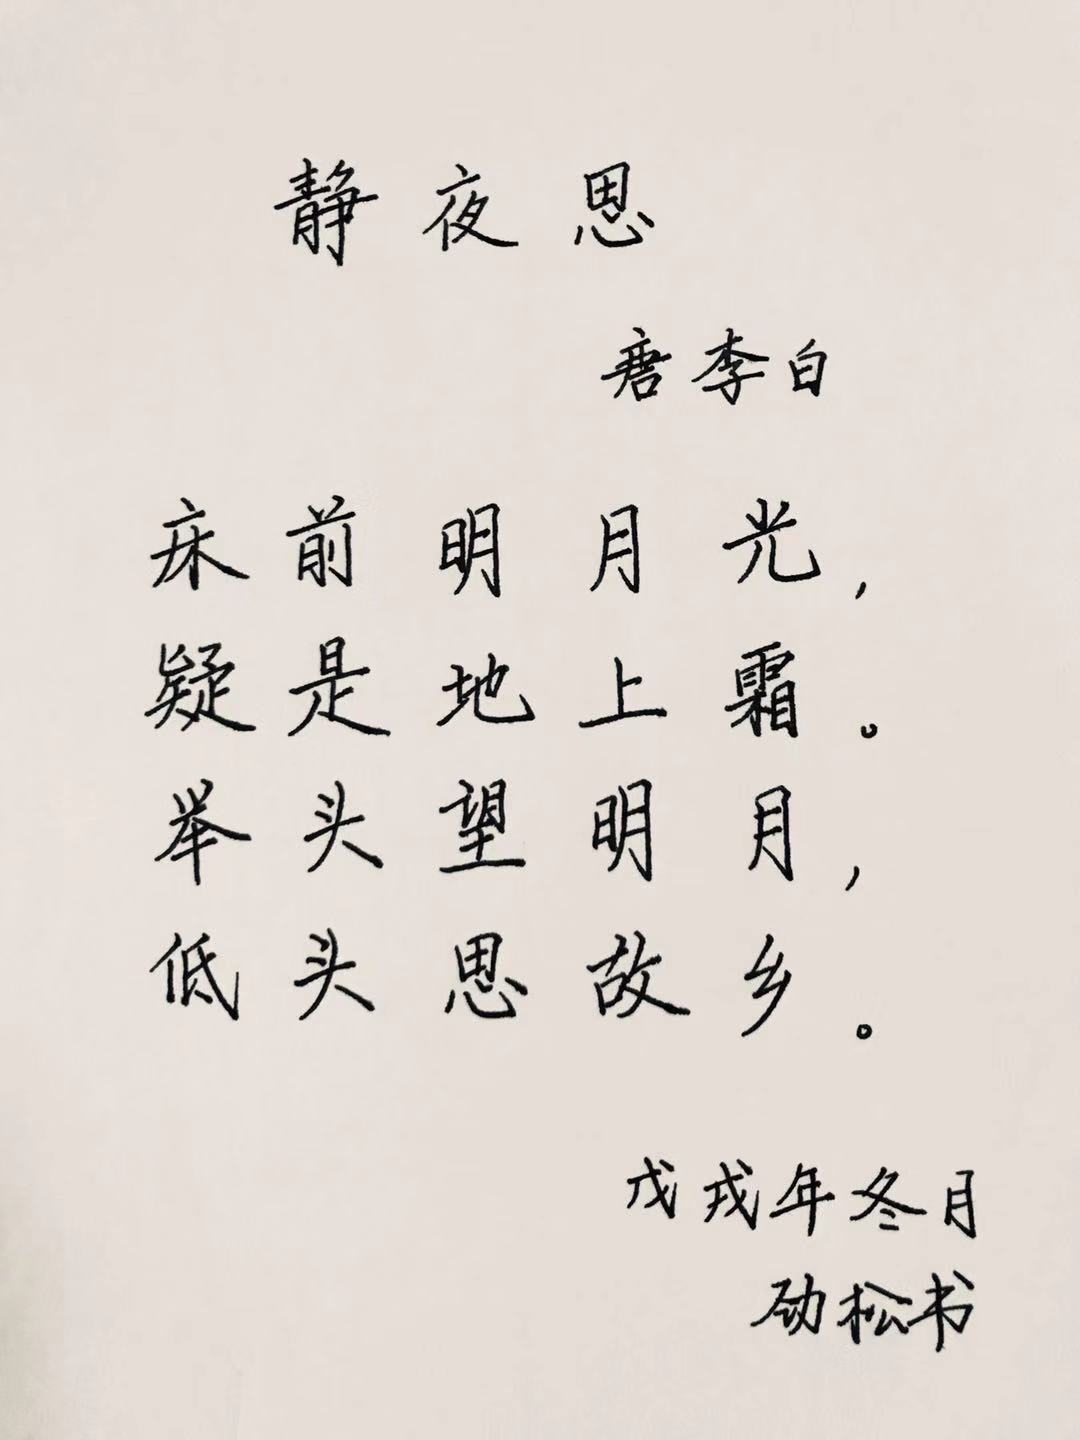 静夜思
唐李白
床前明月光，
疑是地上霜。
举头望明月，
低头思故乡。
戊戌年冬月
劲松书